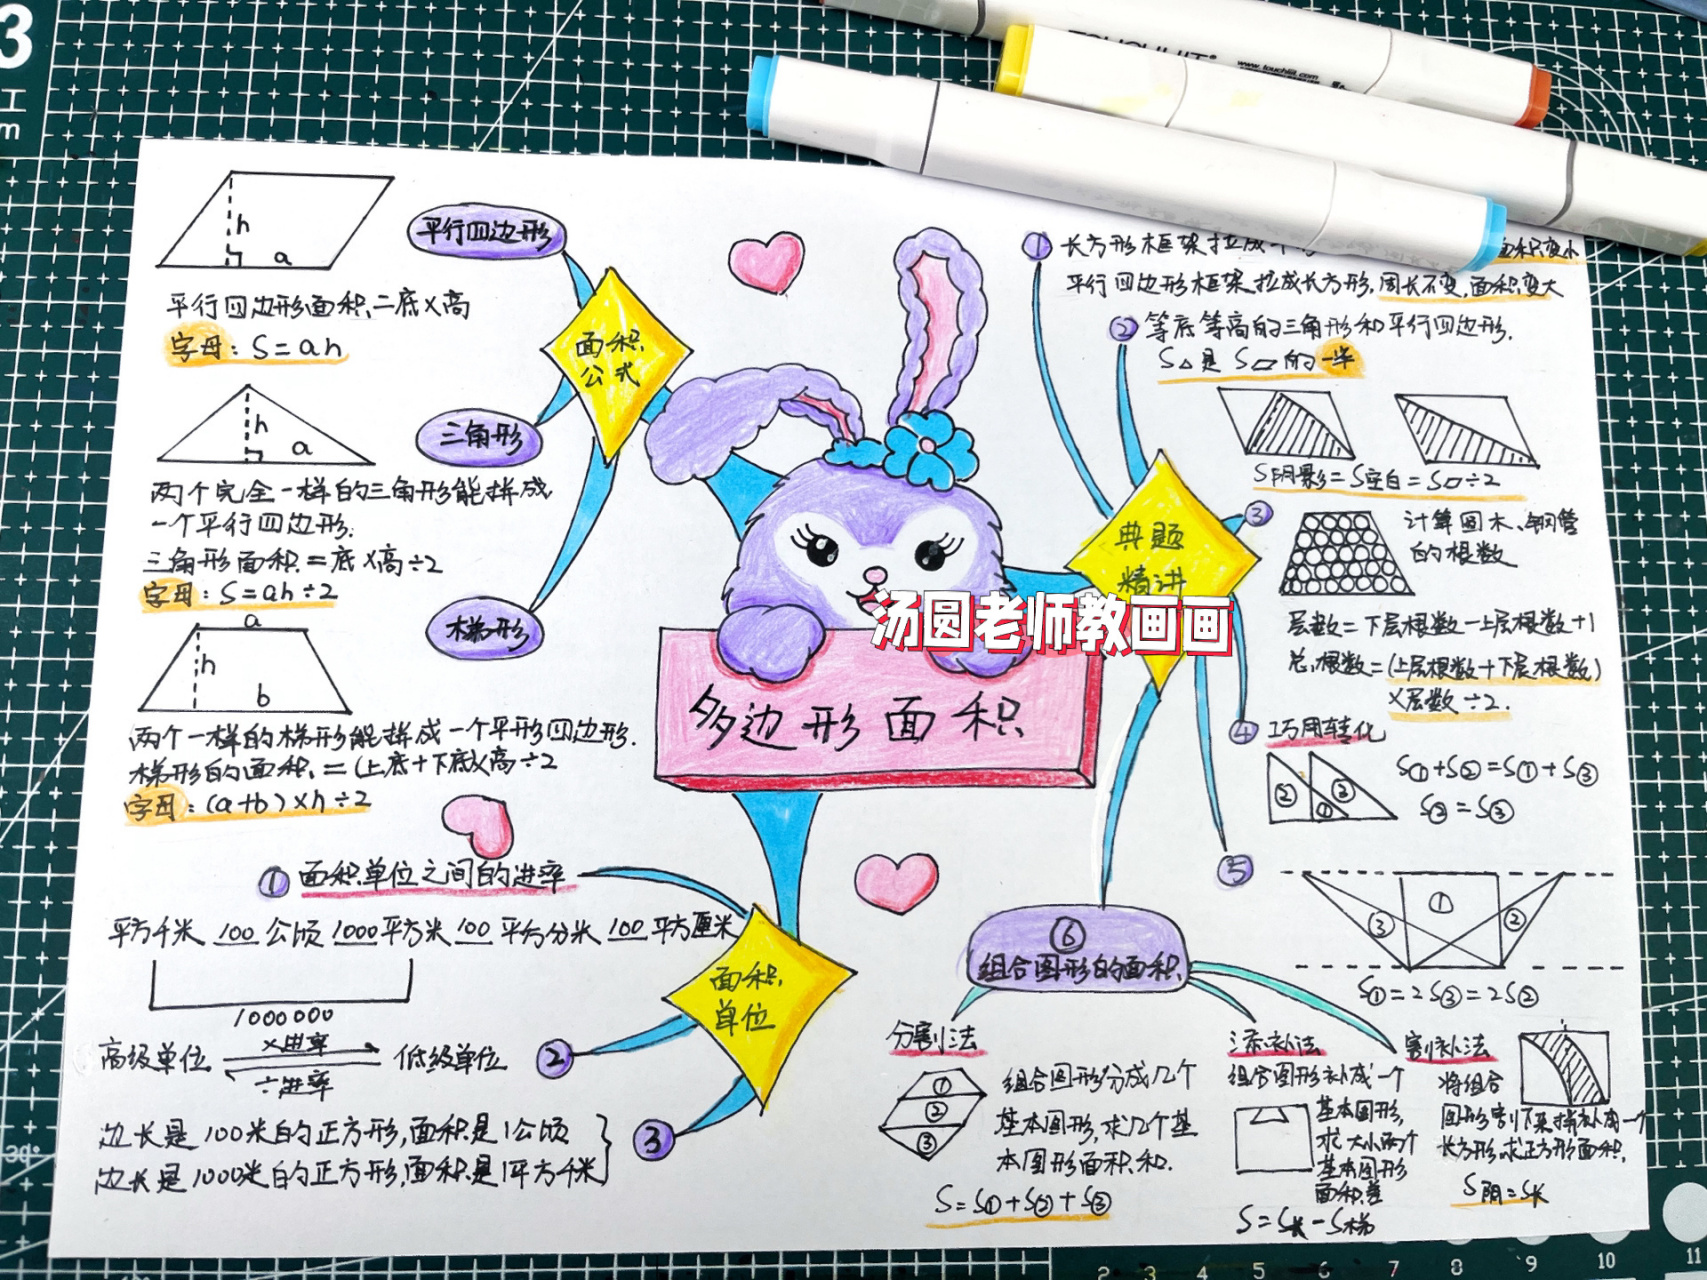 平行四边形
平行四边形面积=底×高
字母:S=ah
h
a
面积
公式
三角形
h
a
两个完全一样的三角形能拼成
一个平行四边形.
三角形面积=底×高÷2
字母:S=ah÷2
梯形
a
h
b
两个一样的梯形能拼成一个平形四边形.
梯形的面积=(上底+下底)×高÷2
字母:(a+b)×h÷2
汤圆老师教画画
多边形面积
① 面积单位之间的进率
平方千米 100 公顷 1000 平方米 100 平方分米 100 平方厘米
1000000
面积
单位
②
高级单位 ×进率 低级单位
÷进率
③
边长是100米的正方形,面积是1公顷
边长是1000米的正方形,面积是1平方千米
典题
精讲
① 长方形框架拉成
面积变小
平行四边形框架拉成长方形,周长不变,面积变大
② 等底等高的三角形和平行四边形.
S△是S▱的一半
S阴影=S空白=S▱÷2
③
计算圆木、钢管
的根数
层数=下层根数-上层根数+1
总根数=(上层根数+下层根数)
×层数÷2.
④ 巧用转化
② ① ③
S①+S②=S①+S③
S②=S③
⑤
③ ① ②
S①=2S③=2S②
⑥
组合图形的面积
分割法
①
②
③
组合图形分成几个
基本图形,求几个基
本图形面积和.
S=S①+S②+S③
添补法
组合图形补成一个
基本图形,
求大小两个
基本图形
面积差
S=S长-S梯
割补法
将组合
图形割下来拼补成一个
长方形,求正方形面积.
S阴=S长
www.touchliit.com
3
2 3 4 5 6 7 8 9 10 11